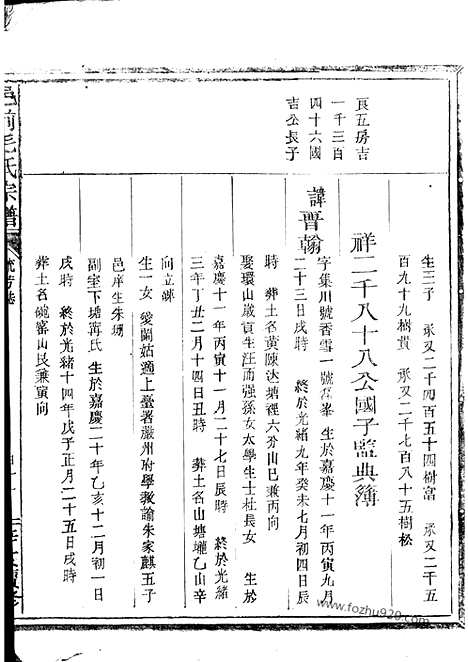 生三子　承又二千四百五十四樹富　承又二千五
百九十九樹貴　承又二千七百八十五樹松
良五房吉
一千三百
四十六國
吉公長子
祥二千八十八公國子監典簿
諱晋翰
字集川號香雪一號 峯　生於嘉慶十一年丙寅九月
二十三日戌時　終於光緒九年癸未七月初四日辰
時　葬土名黃陳达塘裡六分山巳兼丙向
娶環山歲貢生汪而强孫女太學生士杜長女　生於
嘉慶十一年丙寅十一月二十七日辰時　終於光緒
三年丁丑二月十四日丑時　葬土名山塘壠乙山辛
向立碑
生一女　愛蘭姑適上臺署嚴州府學教諭朱家麒五子
邑庠生朱
副室下塘蔣氏　生於嘉慶二十年乙亥十二月初一日
戌時　終於光緒十四年戊子正月二十五日戌時
葬土名碗窰山艮兼寅向
毛氏宗譜
www.fozhu920.com